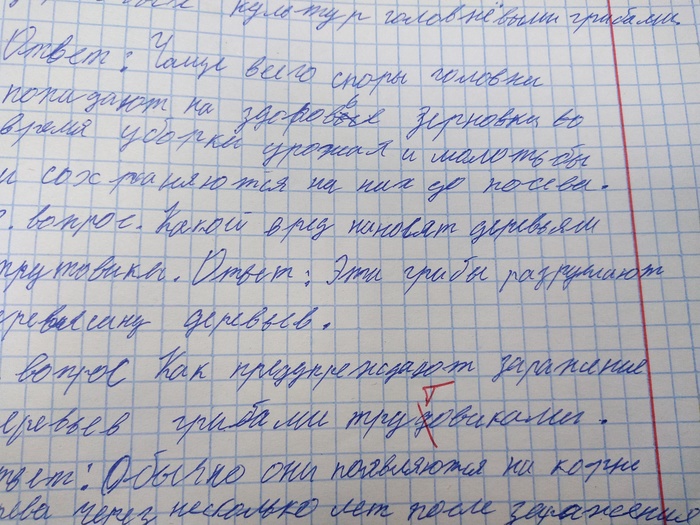 культур головнёвыми грибами.
Ответ: Чаще всего споры головни
попадают на здоровые зерновки во
время уборки урожая и молотьбы
и сохраняются на них до посева.
вопрос. Какой вред наносят деревьям
трутовики. Ответ: Эти грибы разрушают
древесину деревьев.
вопрос Как предупреждают заражение
деревьев грибами трутовиками.
Ответ: Обычно они появляются на корне
через несколько лет после заражения